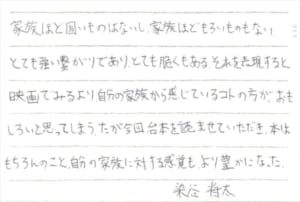 家族ほど固いものはないし、家族ほどもろいものもない
とても強い繋がりであり、とても脆くもある。それを表現すると
映画でみるより、自分の家族から感じているコトの方が、おも
しろいと思ってしまう。だが今回台本を読ませていただき、本は
もちろんのこと、自分の家族に対する感覚も、より豊かになった。
染谷 将太